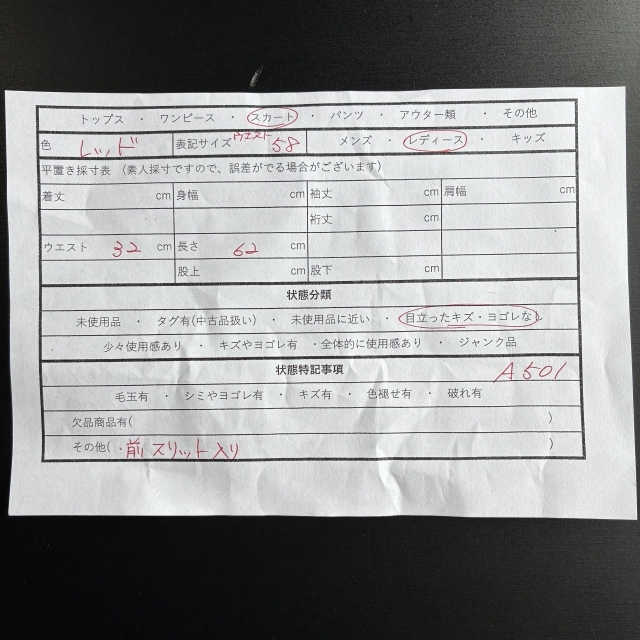 トップス ・ ワンピース ・ スカート ・ パンツ ・ アウター類 ・ その他
色 レッド 表記サイズ ウエスト 58 メンズ ・ レディース ・ キッズ
平置き採寸表 (素人採寸ですので、誤差がでる場合がございます)
着丈 cm 身幅 cm 袖丈 cm 肩幅 cm
裄丈 cm
ウエスト 32 cm 長さ 62 cm
股上 cm 股下 cm
状態分類
未使用品 ・ タグ有(中古品扱い) ・ 未使用品に近い ・ 目立ったキズ・ヨゴレなし
少々使用感あり ・ キズやヨゴレ有 ・全体的に使用感あり ・ ジャンク品
状態特記事項
A501
毛玉有 ・ シミやヨゴレ有 ・ キズ有 ・ 色褪せ有 ・ 破れ有
欠品商品有( )
その他( ・前スリット入り )